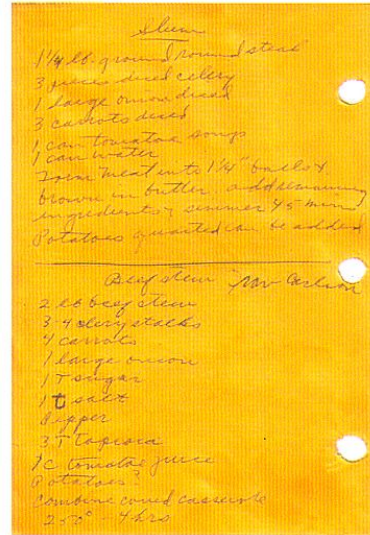 Stew
1 1/4 lb. ground round steak
3 pieces diced celery
1 large onion diced
3 carrots diced
1 can tomatoe soup
1 can water
Form meat into 1 1/4" balls &
brown in butter. add remaining
ingredients & simmer 45 min
Potatoes quarted can be added
Beef stew
2 lb beef stew
3-4 celery stalks
4 carrots
1 large onion
1 T sugar
1 t salt
Pepper
3 T tapioca
1 c tomatoe juice
Potatoes?
Combine coved casserole
250° - 4 hrs